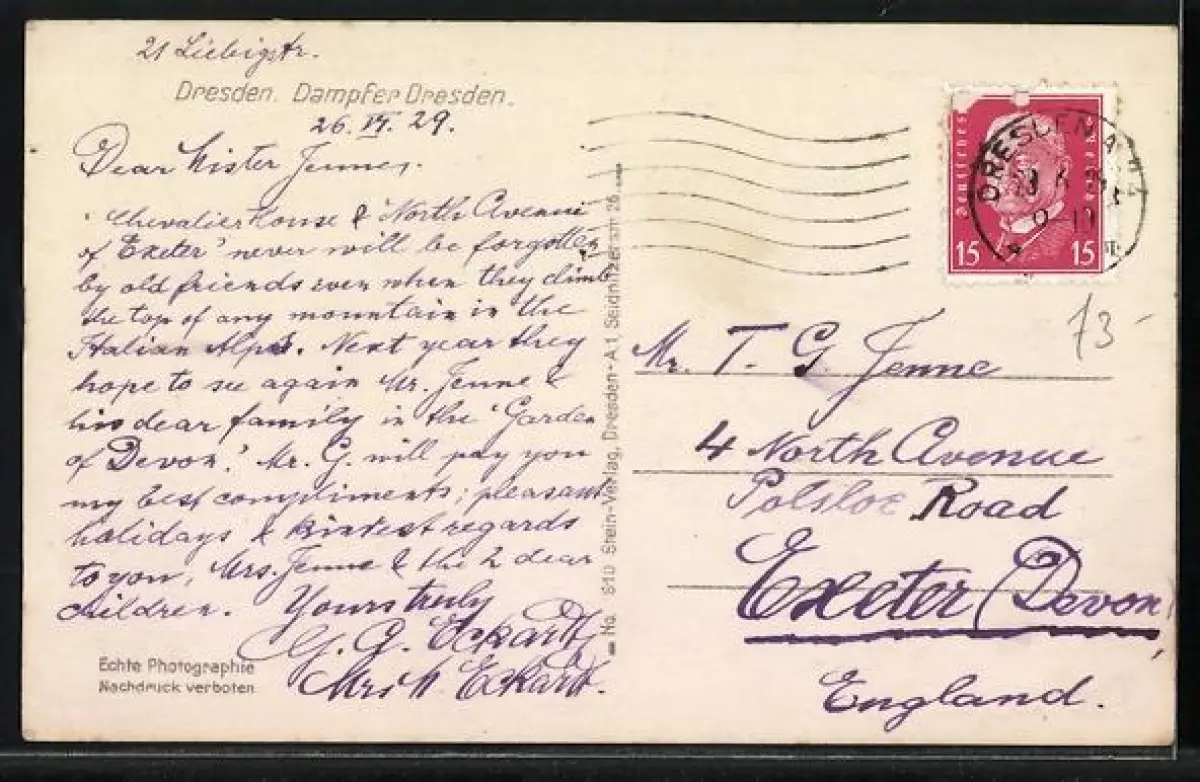 21 Liebigstr.
Dresden. Dampfer Dresden.
26. IV. 29.
Dear Mister Jenne,
'Chevalier House & North Avenue
of Exeter' never will be forgotten
by old friends even when they climb
the top of any mountain in the
Italian Alps. Next year they
hope to see again Mr. Jenne &
his dear family in the 'Garden
of Devon.' Mr. G. will pay you
my best compliments; pleasant
holidays & kindest regards
to you, Mrs. Jenne & the 2 dear
children. Yours truly
G. Eckardt
Mrs M. Eckardt.
Echte Photographie
Nachdruck verboten
No. 810 Stein-Verlag, Dresden-A 1, Seidnitzerstr. 26
Deutsches
15 15
DRESDEN A
13-
Mr. T. G. Jenne
4 North Avenue
Polsloe Road
Exeter (Devon)
England.